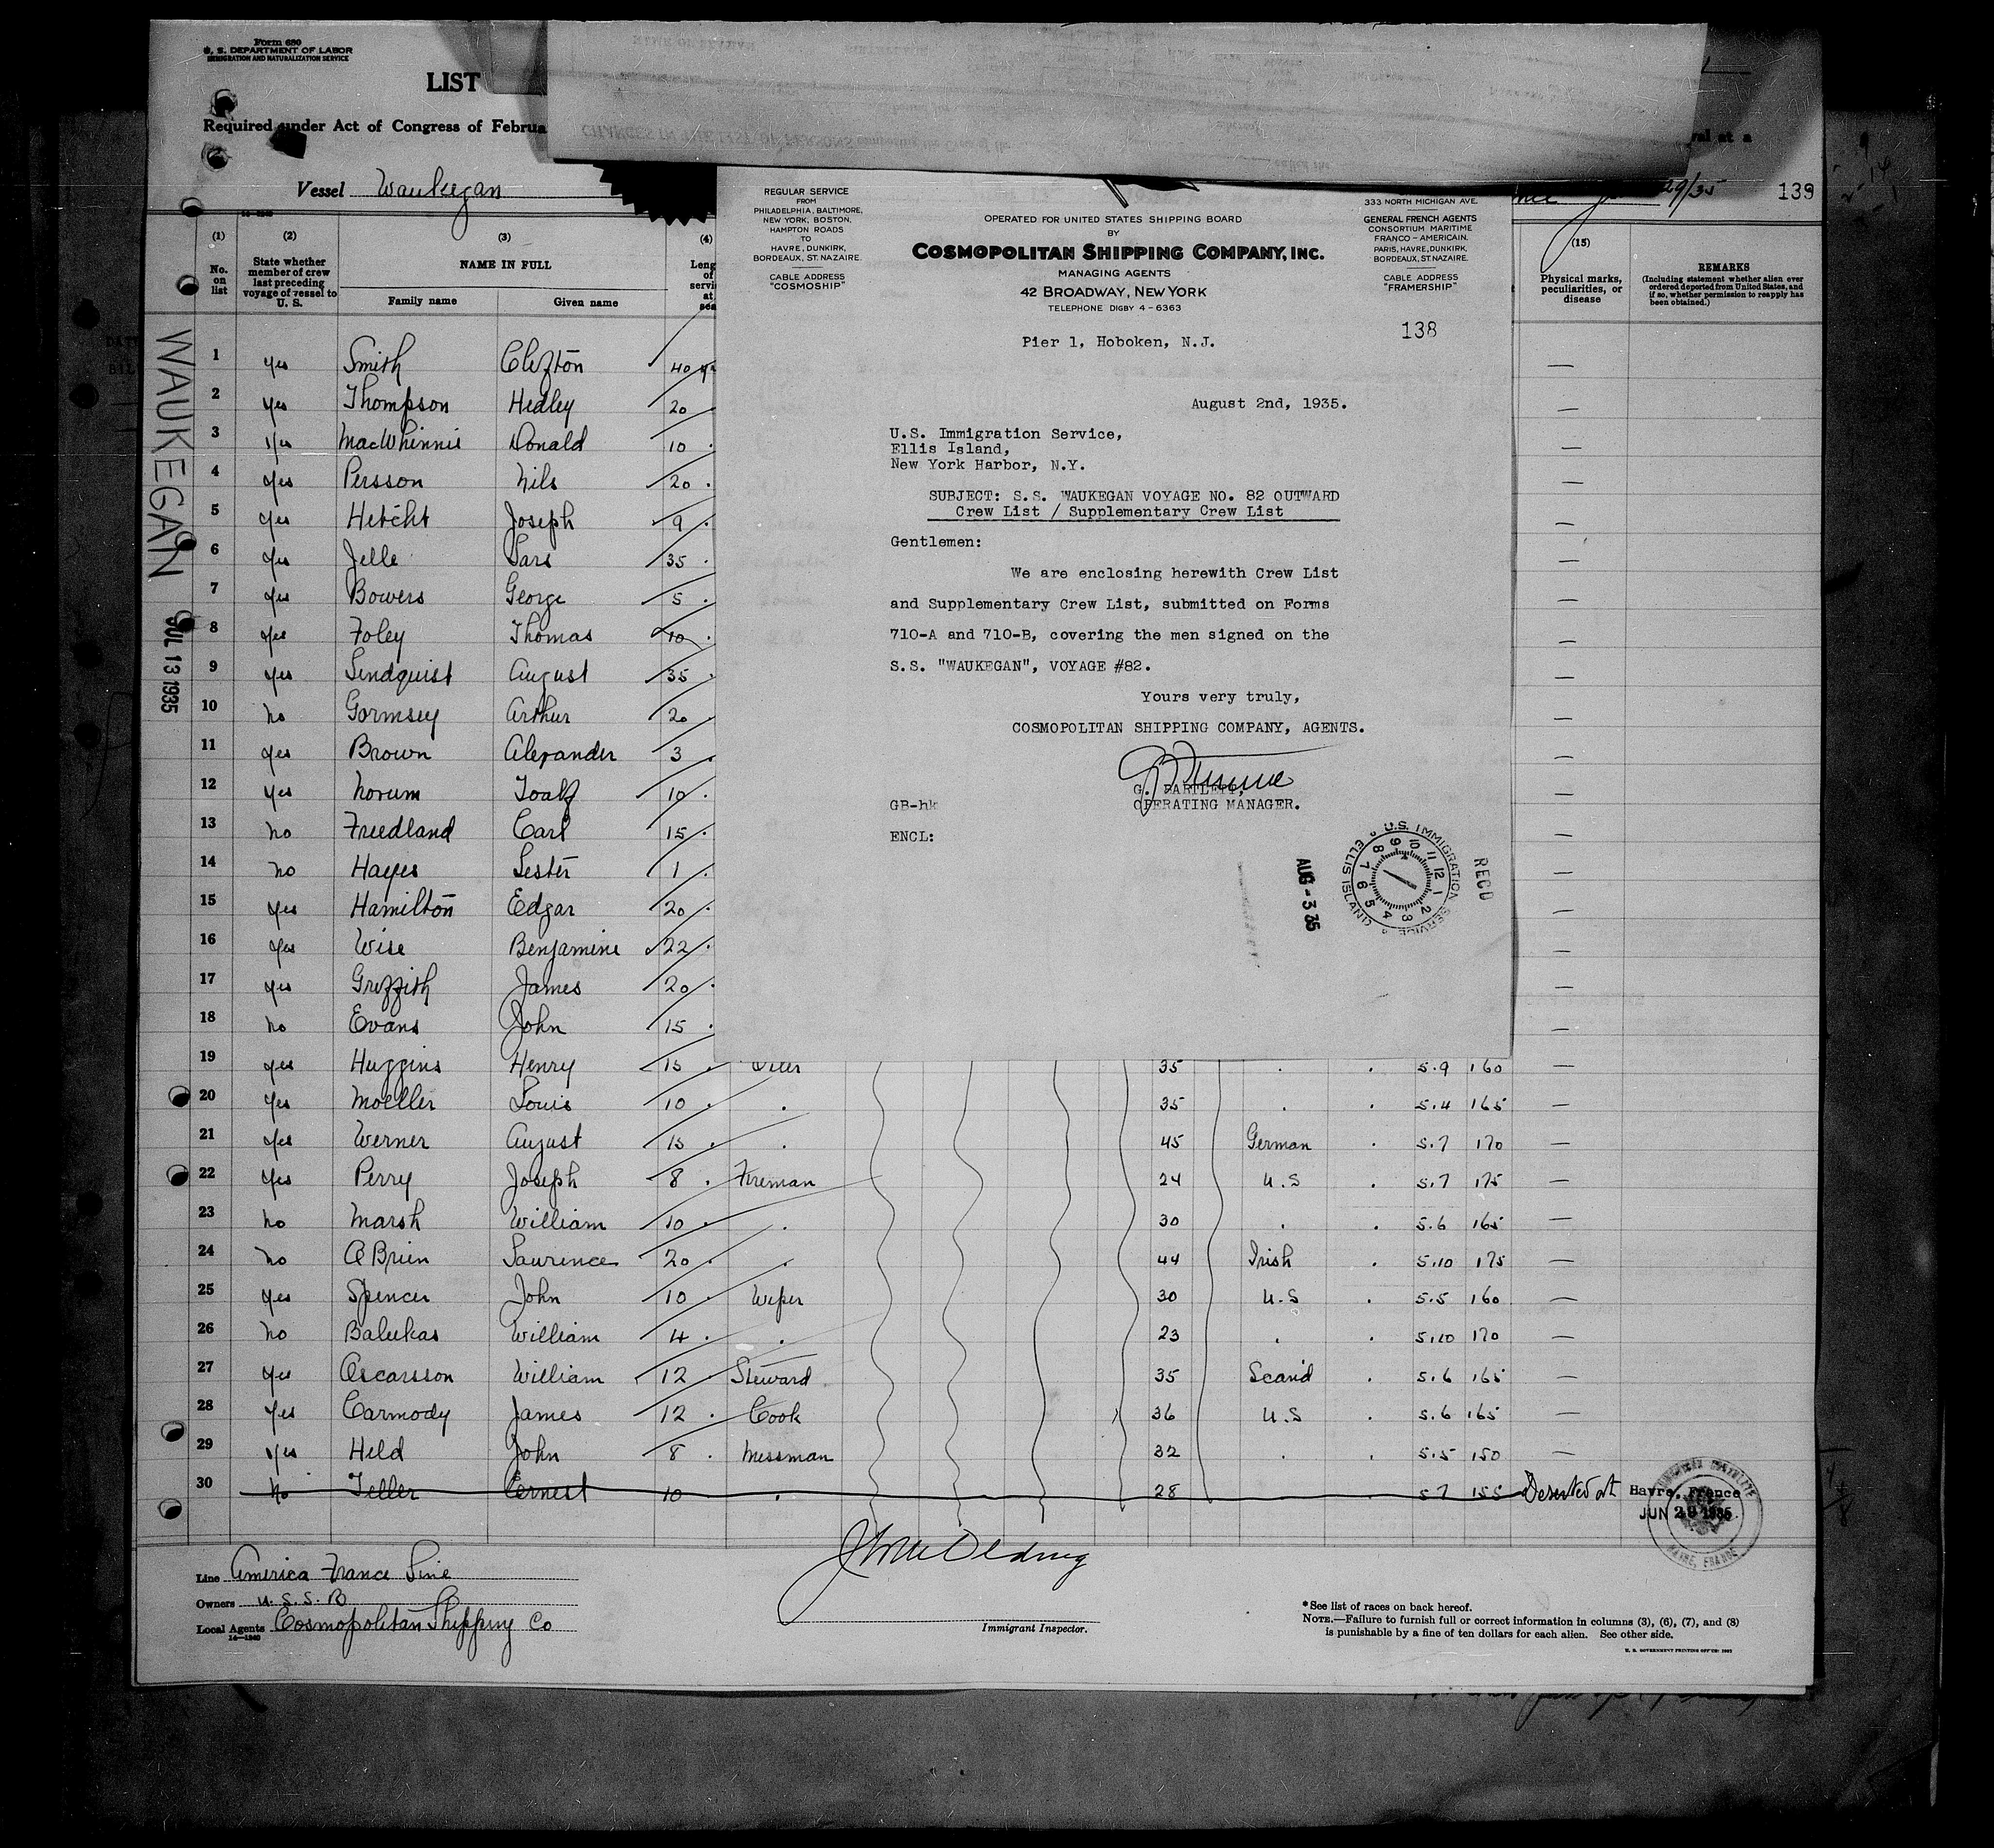 Form 680
U. S. DEPARTMENT OF LABOR
IMMIGRATION AND NATURALIZATION SERVICE
LIST
Required under Act of Congress of Februa
Vessel Waukegan
29/35
139
(1) No. on list
(2) State whether member of crew last preceding voyage of vessel to U. S.
(3) NAME IN FULL
Family name Given name
(4)
(15) Physical marks, peculiarities, or disease
REMARKS
(Including statement whether alien ever ordered deported from United States, and if so, whether permission to reapply has been obtained.)
WAUKEGAN JUL 13 1935
REGULAR SERVICE
FROM
PHILADELPHIA, BALTIMORE,
NEW YORK, BOSTON,
HAMPTON ROADS
TO
HAVRE, DUNKIRK,
BORDEAUX, ST. NAZAIRE.
CABLE ADDRESS
"COSMOSHIP"
OPERATED FOR UNITED STATES SHIPPING BOARD
BY
COSMOPOLITAN SHIPPING COMPANY, INC.
MANAGING AGENTS
42 BROADWAY, NEW YORK
TELEPHONE DIGBY 4-6363
333 NORTH MICHIGAN AVE.
GENERAL FRENCH AGENTS
CONSORTIUM MARITIME
FRANCO-AMERICAIN.
PARIS, HAVRE, DUNKIRK,
BORDEAUX, ST. NAZAIRE.
CABLE ADDRESS
"FRAMERSHIP"
138
Pier 1, Hoboken, N.J.
August 2nd, 1935.
U.S. Immigration Service,
Ellis Island,
New York Harbor, N.Y.
SUBJECT: S.S. WAUKEGAN VOYAGE NO. 82 OUTWARD
Crew List / Supplementary Crew List
Gentlemen:
We are enclosing herewith Crew List
and Supplementary Crew List, submitted on Forms
710-A and 710-B, covering the men signed on the
S.S. "WAUKEGAN", VOYAGE #82.
Yours very truly,
COSMOPOLITAN SHIPPING COMPANY, AGENTS.
G. BARTLETT,
GB-hk OPERATING MANAGER.
ENCL:
AUG - 3 35
U.S. IMMIGRATION SERVICE ELLIS ISLAND
RECD
1 yes Smith Clifton 40
2 yes Thompson Hedley 20
3 yes MacWhinnie Donald 10
4 yes Persson Nils 20
5 yes Hetcht Joseph 9
6 yes Jelle Lars 35
7 yes Bowers George 5
8 yes Foley Thomas 10
9 yes Lindquist August 35
10 no Gormsey Arthur 20
11 yes Brown Alexander 3
12 yes Norum Toalf 10
13 no Freedland Carl 15
14 no Hayes Lester 1
15 yes Hamilton Edgar 20
16 yes Wise Benjamine 22
17 yes Griffith James 20
18 no Evans John 15
19 yes Huggins Henry 15 Oiler 35 5.9 160 —
20 yes Moeller Louis 10 35 5.4 165 —
21 yes Werner August 15 45 German 5.7 170 —
22 yes Perry Joseph 8 Fireman 24 U.S 5.7 175 —
23 no Marsh William 10 30 5.6 165 —
24 no O Brien Lawrence 20 44 Irish 5.10 175 —
25 yes Spencer John 10 Wiper 30 U.S 5.5 160 —
26 no Balukas William 4 23 5.10 170 —
27 yes Oscarsson William 12 Steward 35 Scand 5.6 165 —
28 yes Carmody James 12 Cook 36 U.S 5.6 165 —
29 yes Held John 8 Messman 32 5.5 150 —
30 no Teller Earnest 10 28 5 7 155 Deserted at Havre, France
JUN 29 1935
HAVRE, FRANCE
Line America France Line
Owners U. S. S. B
Local Agents Cosmopolitan Shipping Co
14—1240
Immigrant Inspector.
*See list of races on back hereof.
NOTE.—Failure to furnish full or correct information in columns (3), (6), (7), and (8)
is punishable by a fine of ten dollars for each alien. See other side.